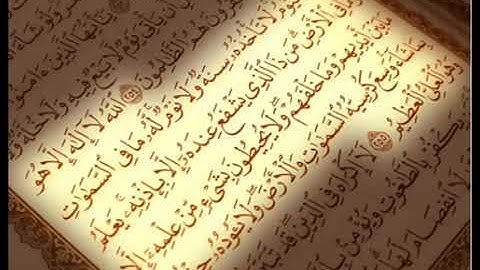 يَٰٓأَيُّهَا ٱلَّذِينَ ءَامَنُوٓا۟
أَن يَأْتِىَ يَوْمٌ لَّا بَيْعٌ فِيهِ وَلَا خُلَّةٌ وَلَا
ٱلظَّٰلِمُونَ ٢٥٤ ٱللَّهُ لَآ إِلَٰهَ إِلَّا هُوَ
لَا تَأْخُذُهُۥ سِنَةٌ وَلَا نَوْمٌ لَّهُۥ مَا فِى ٱلسَّمَٰوَٰتِ
فِى ٱلْأَرْضِ مَن ذَا ٱلَّذِى يَشْفَعُ عِندَهُۥٓ إِلَّا بِإِذْنِهِۦ يَعْلَمُ
بَيْنَ أَيْدِيهِمْ وَمَا خَلْفَهُمْ وَلَا يُحِيطُونَ بِشَىْءٍ مِّنْ عِلْمِهِۦٓ إِلَّا
بِمَا شَآءَ وَسِعَ كُرْسِيُّهُ ٱلسَّمَٰوَٰتِ وَٱلْأَرْضَ وَلَا يَـُٔودُهُۥ
وَهُوَ ٱلْعَلِىُّ ٱلْعَظِيمُ ٢٥٥ لَآ إِكْرَاهَ فِى ٱلدِّينِ قَد
يَكْفُرْ بِٱلطَّٰغُوتِ وَيُؤْمِنۢ
لَا ٱنفِصَامَ لَهَا